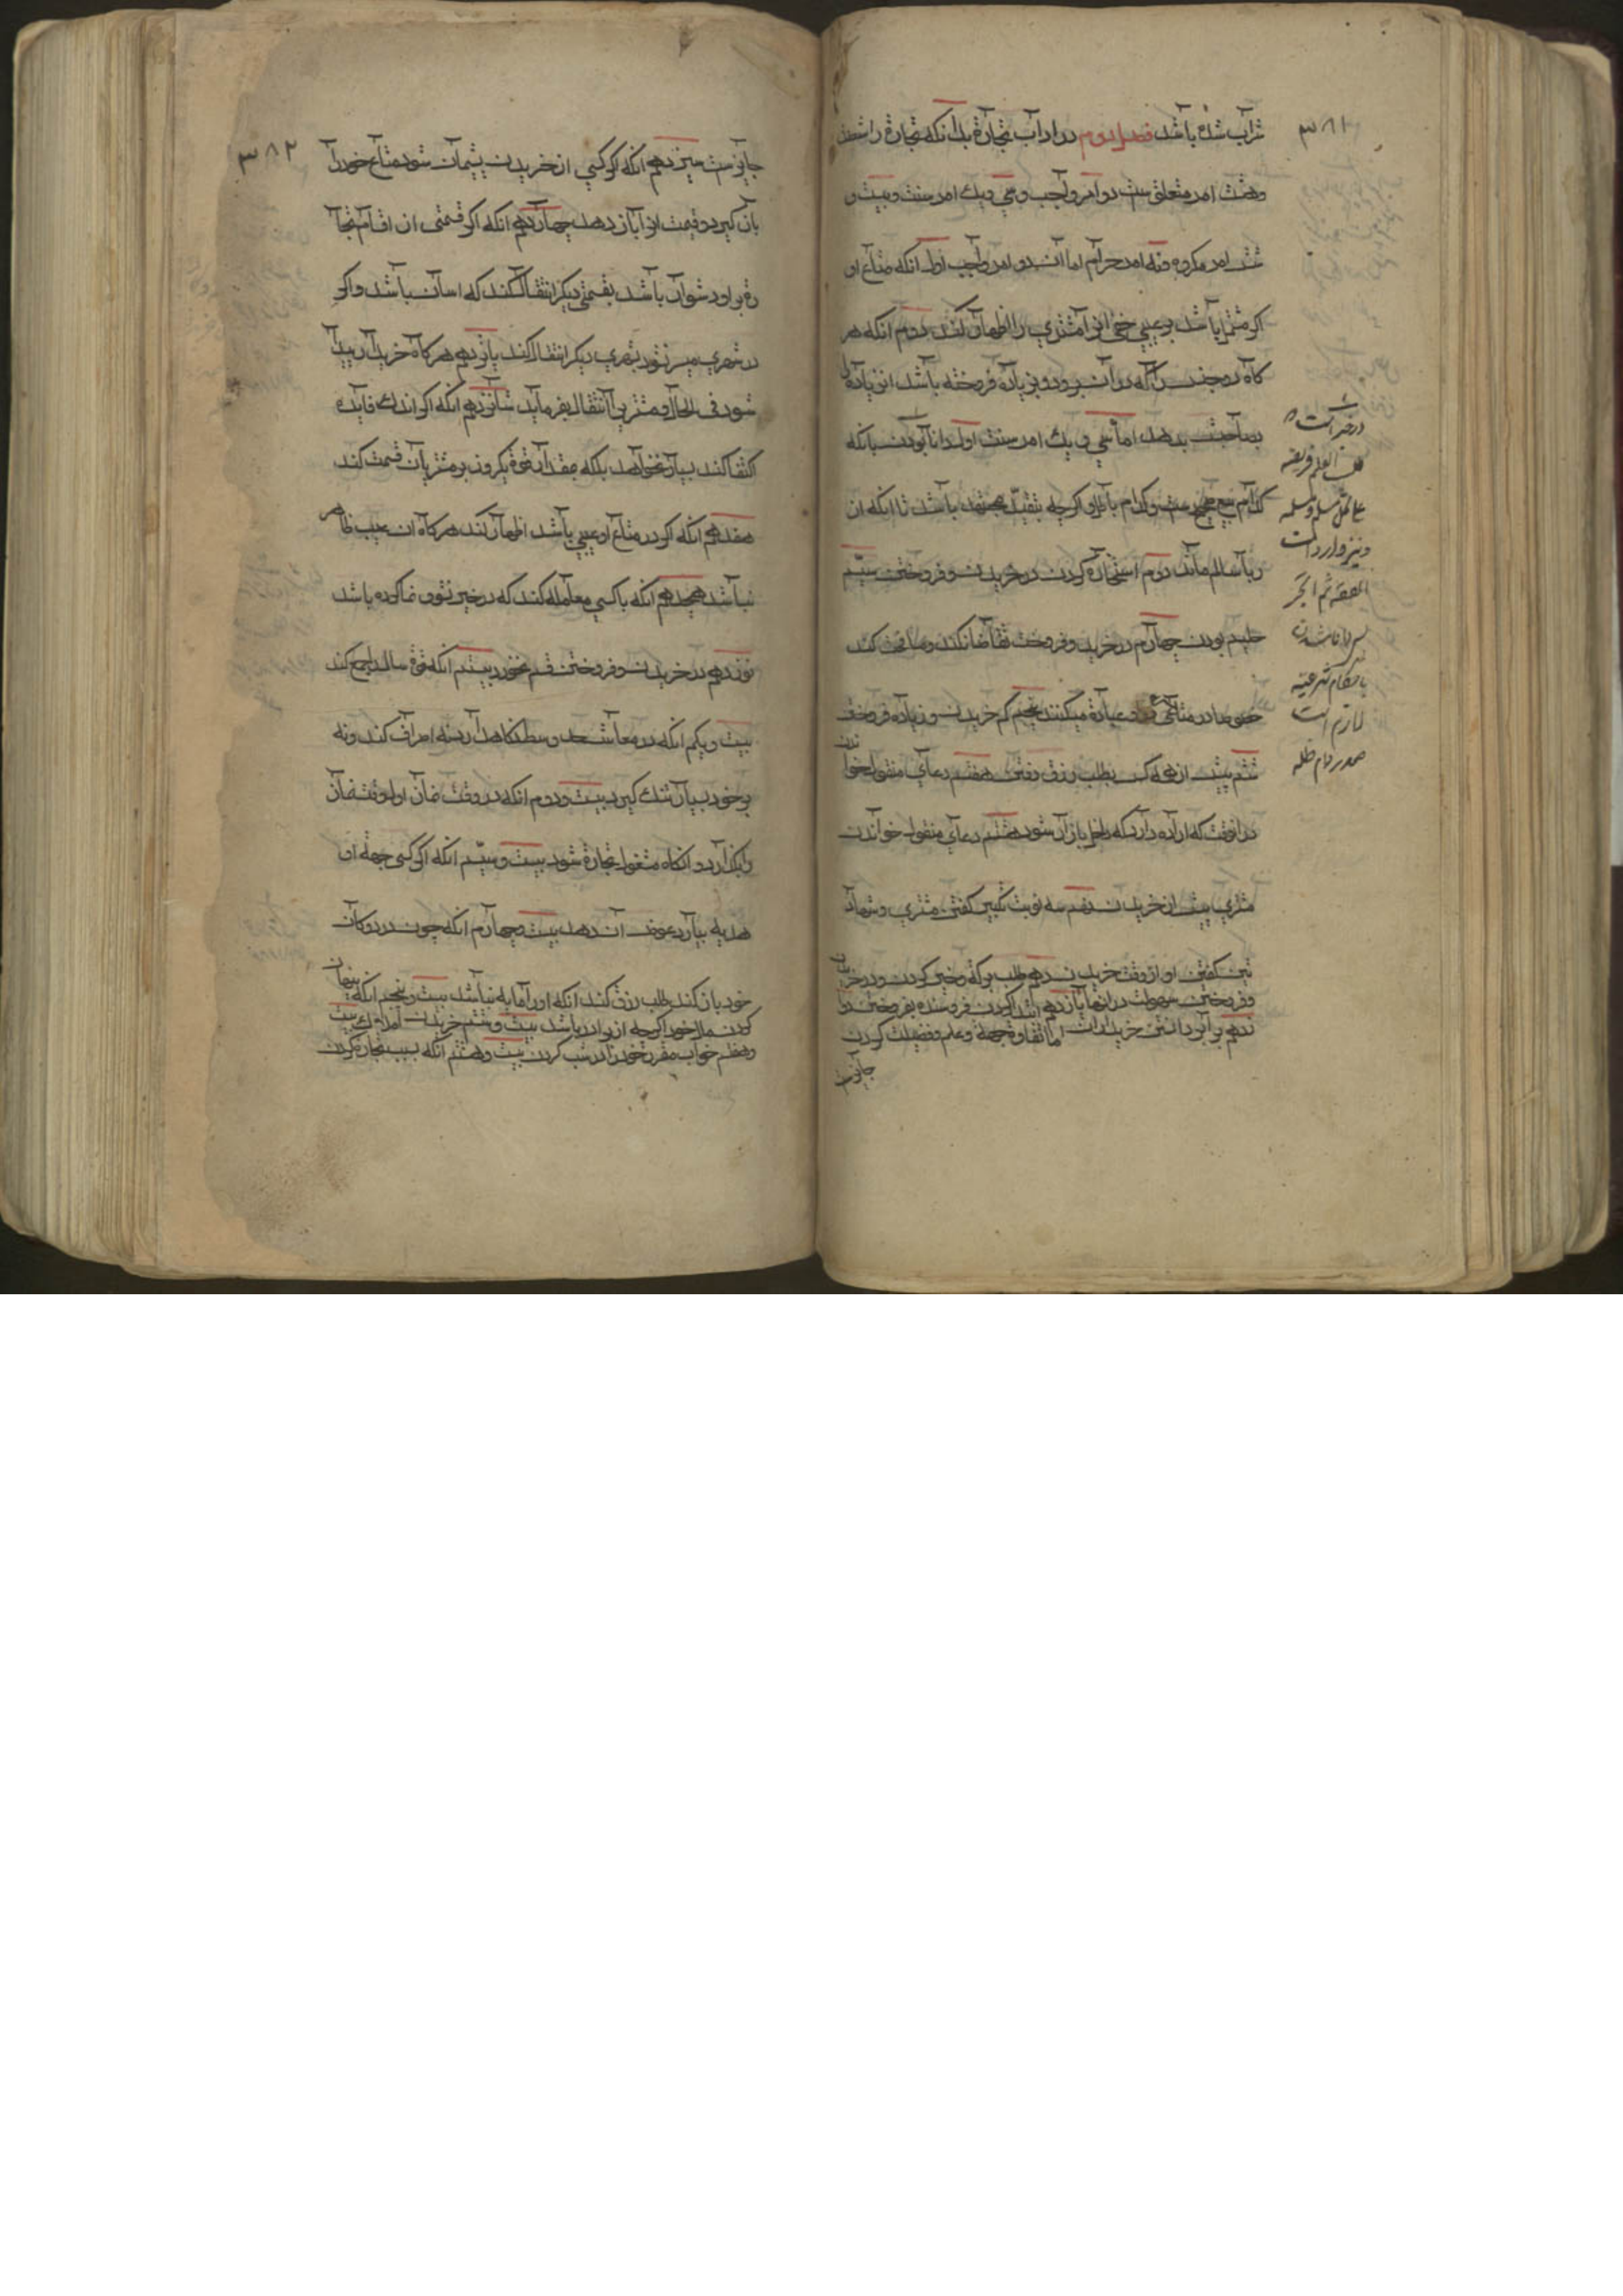 ۳۸۱
شراب شده باشد فصل دوم در اداب تجارة بدانکه تجارة را شصت
وهشت امر متعلق ست دو امر واجب وسي ويك امر سنت وبيست و
شش امر مکروه ونه امر حرام اما ان دو امر واجب اول انکه متاع او
اکر مشتمل باشد بر عيبي خفي انرا مشتري را اظهار کند دوم انکه هر
کاه دو جنس را که در ان ربوا رود بزياده فروخته باشد ان زياده را
بصاحبش بدهد اما سي ويك امر سنت اول دانا بودن بانکه
کدام بيع صحيح ست وکدام باطل واکرچه بتقليد مجتهد باشد تا انکه از
ربا سالم ماند دوم استخاره کردن در خريدن وفروختن سيّم
حليم بودن چهارم در خريد وفروخت تقاضا نکند ومناقشه کند
خصوصا در متاعي که در عبادة ميکنند پنجم کم خريدن وزياده فروختن
ششم پيش از همه کس بطلب رزق رفتن هفتم دعاي منقول خواندن
در انوقت که اراده دارد که داخل بازار شود هشتم دعاي منقول خواندن
مشتري پيش از خريدن نهم سه نوبت تکبير کفتن مشتري وشهاد
تين کفتن او از وقت خريدن دهم طلب برکة وخير کردن ودر خريدن
وفروختن سهولت در انها يازدهم ابتدا کردن فروشنده بفروختن دوا
زدهم برابر دانستن خريداران اما تفاوة بجهة وعلم وفضيلت کردن
جايزست
در خبر است
طلب العلم فريضة
علي کل مسلم ومسلمه
ونيز وارد است
الفقه ثم المتجر
پس دانا شدن
باحکام شرعيه
لازم است
صدر دام ظله
۳۸۲
جايزست سيزدهم انکه اکر کسي از خريدن پشيمان شود متاع خود را
باز کيرد وقيمت او را باز دهد چهاردهم انکه اکر قسمتي از اقسام تجا
رة بر او دشوار باشد بقسمتي ديکر انتقال کند که اسان باشد واکر
در شهري ميسر نشود بشهري ديکر انتقال کند پانزدهم هر کاه خريدار پيدا
شود في الحال ومشتري را انتقال بفرمايد شانزدهم انکه اکر اندك فايده
اکتفا کند بسيار نخواهد بلکه مقدار قوة يکروز بر مشتريان قسمت کند
هفدهم انکه اکر در متاع او عيبي باشد اظهار کند هر کاه ان عيب ظاهر
نباشد هجدهم انکه با کسي معامله کند که در خير نشو ونما کرده باشد
نوزدهم در خريدن وفروختن قسم نخورد بيستم انکه قوة سال را جمع کند
بيست ويکم انکه در معاش حد وسط نکاه دارد نه اسراف کند ونه
بر خود بسيار تنك کيرد بيست ودوم انکه در وقت نماز اول وقت نماز
را بکذارد وانکاه مشغول تجارة شود بيست وسيّم انکه اکر کسي جهة او
هديه بيارد عوض ان دهد بيست وچهارم انکه چون در دوکان
خود باز کند طلب رزق کند انکه او را مايه نباشد بيست وپنجم انکه پنهان
کردن مال خود اکرچه از برادر باشد بيست وششم خريدن املاك بيست
وهفتم خواب مقرر خود را در شب کردن بيست وهشتم انکه بسبب تجارة کردن